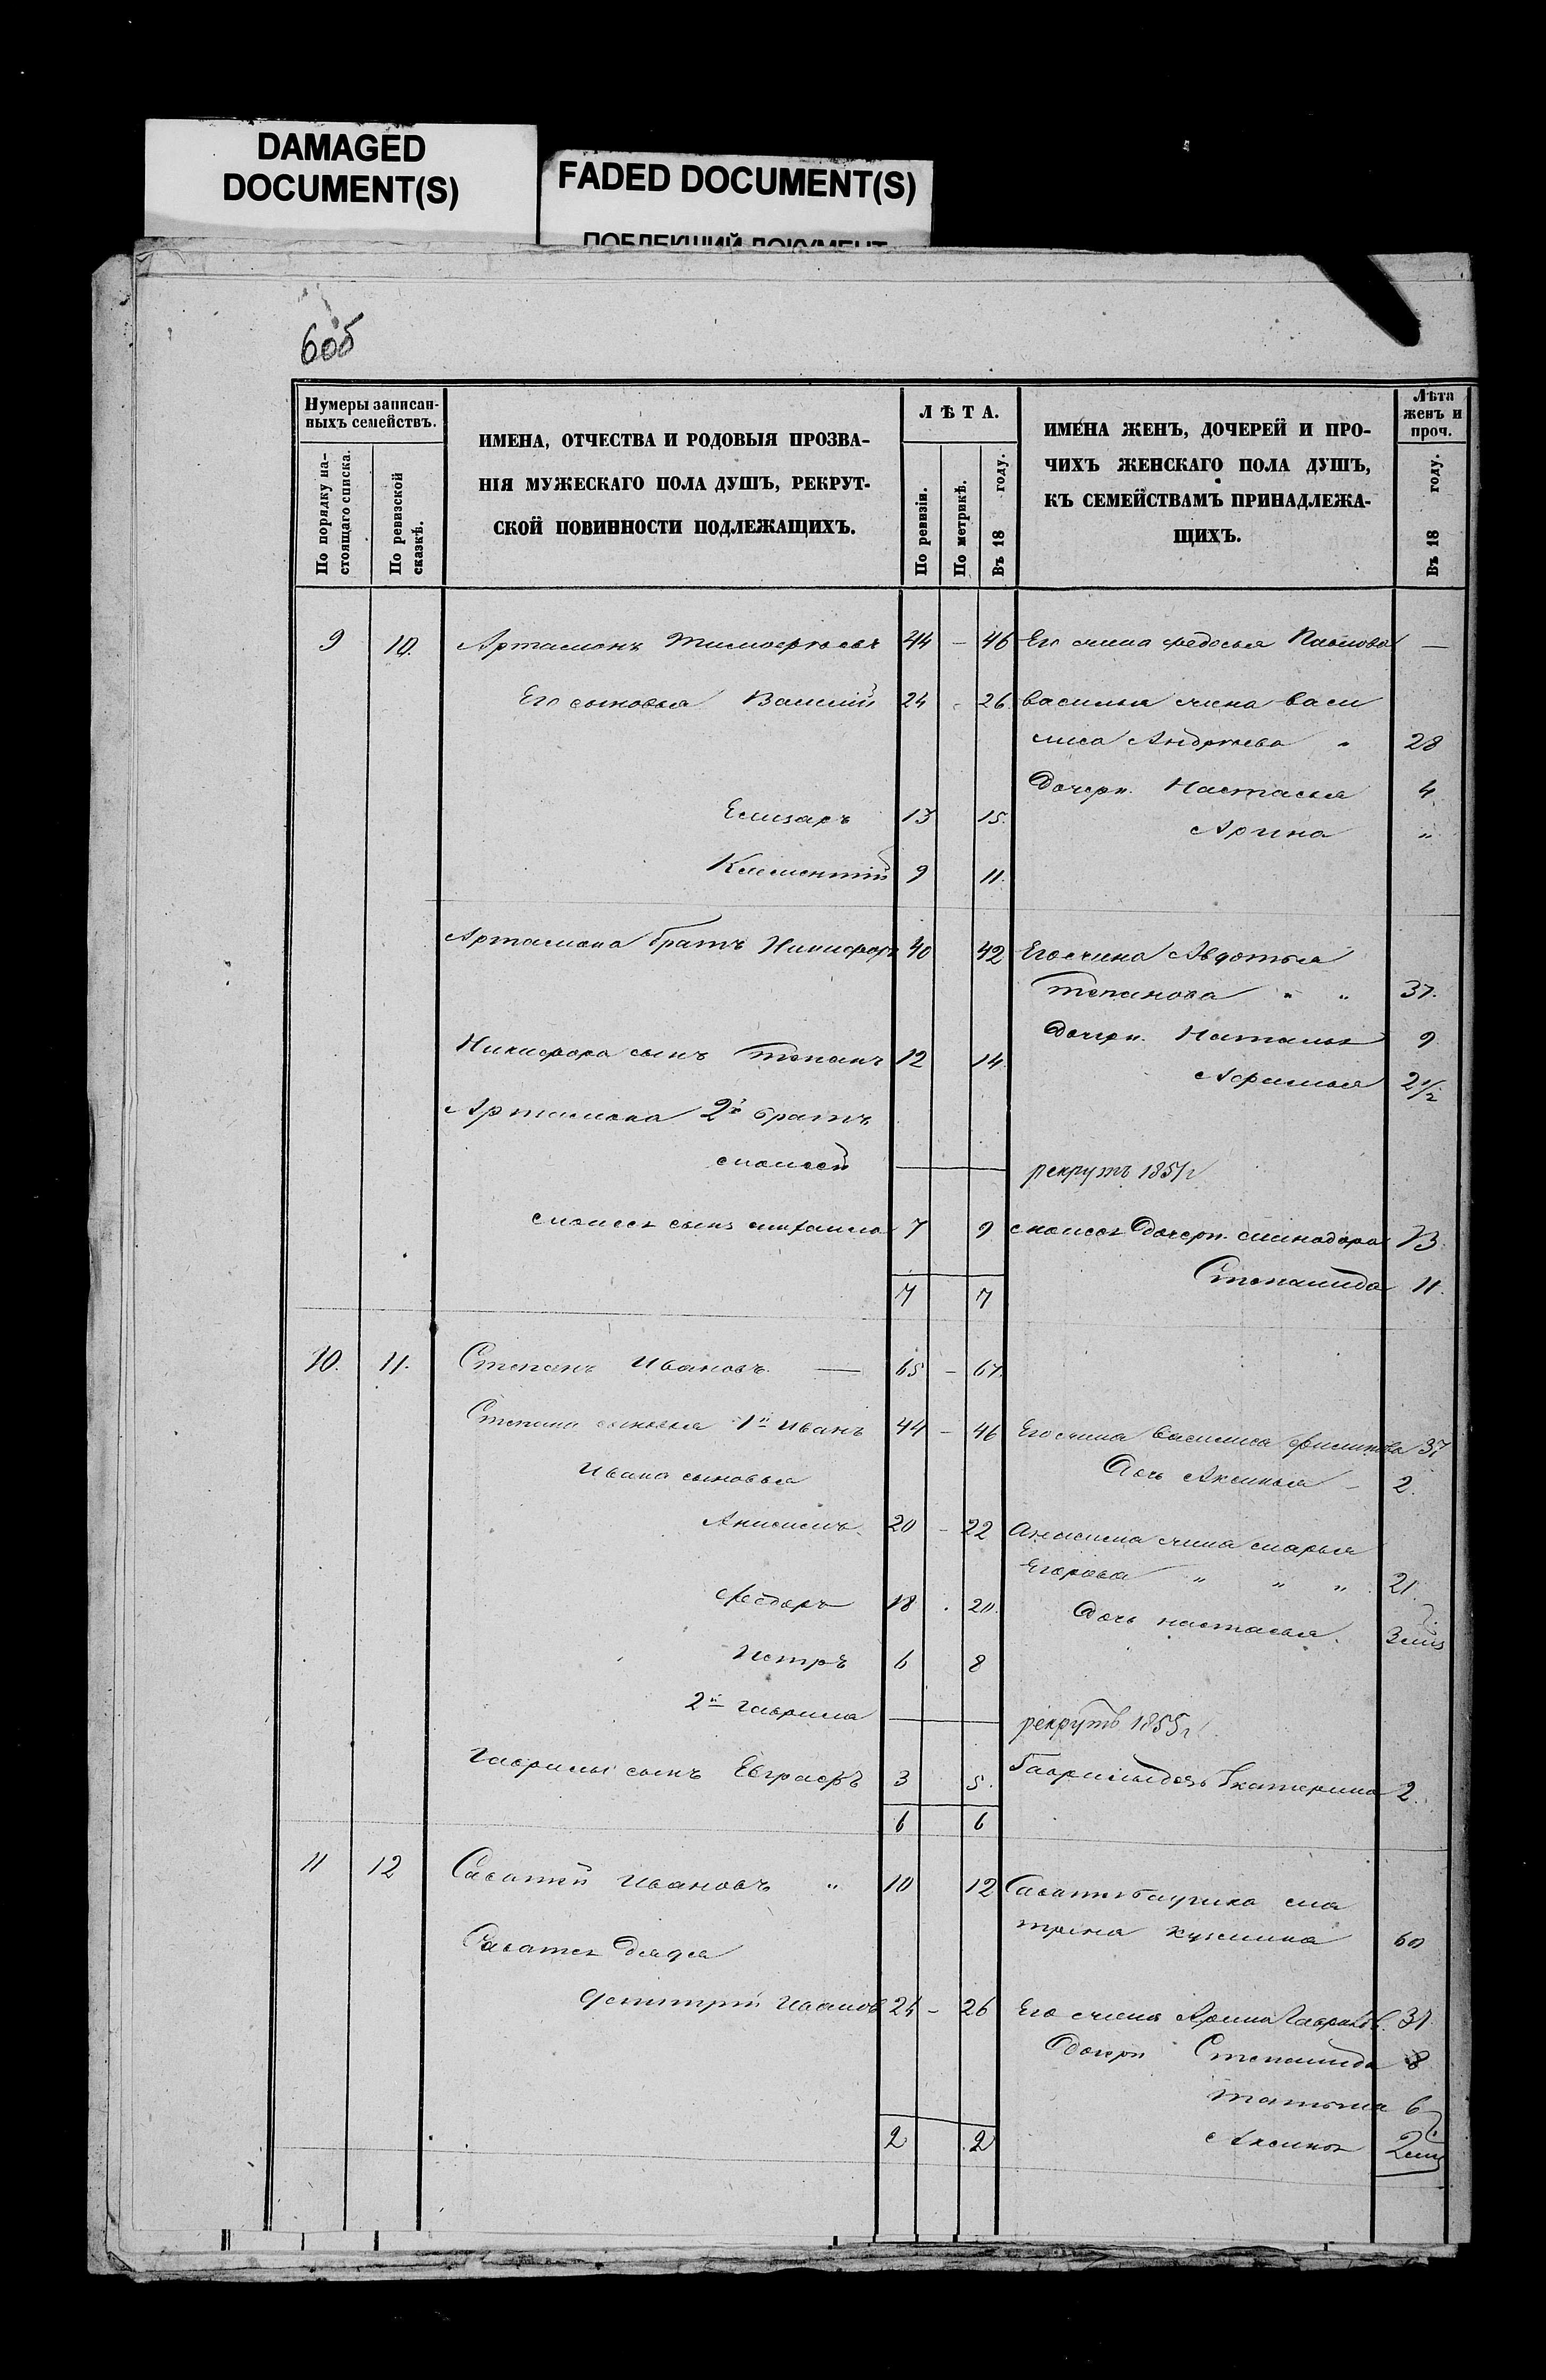 DAMAGED
DOCUMENT(S)
FADED DOCUMENT(S)
ПОБЛЕКШИЙ ДОКУМЕНТ
6об
Нумеры записан-
ныхъ семействъ.
По порядку на-
стоящаго списка.
По ревизской
сказкѣ.
ИМЕНА, ОТЧЕСТВА И РОДОВЫЯ ПРОЗВА-
НІЯ МУЖЕСКАГО ПОЛА ДУШЪ, РЕКРУТ-
СКОЙ ПОВИННОСТИ ПОДЛЕЖАЩИХЪ.
ЛѢТА.
По ревизіи.
По метрикѣ.
Въ 18 году.
ИМЕНА ЖЕНЪ, ДОЧЕРЕЙ И ПРО-
ЧИХЪ ЖЕНСКАГО ПОЛА ДУШЪ,
КЪ СЕМЕЙСТВАМЪ ПРИНАДЛЕЖА-
ЩИХЪ.
Лѣта
женъ и
проч.
Въ 18 году.
9 10. Артамонъ Тимофѣевъ 44 – 46 Его жена Федосья Павлова —
Его сыновья Василий 24 26. Василья жена Васи
лиса Андреева " 28
Дочери. Настасья 4.
Елизаръ 13 15.
Арина "
Климентий 9 11.
Артамона братъ Никифоръ 40 42 Его жена Авдотья
Степанова " " 37.
Дочери. Наталья 9
Никифора сынъ Степанъ 12 14.
Афимья 2 1/2
Артамона 2й братъ
Моисей — рекрутъ 1851г
Моисея сынъ Михаила 7 9 Моисея дочери. Минодора 13.
Степанида 11.
7 7
10. 11. Степанъ Ивановъ — 65 – 67.
Степана сыновья 1й Иванъ 44 – 46 Его жена Василиса Филипова 37
Ивана сыновья
Дочь Аксинья – 2.
Анисимъ. 20 – 22 Анисима жена Марья
Егорова " " " 21.
Федоръ 18 . 20.
Дочь Настасья. 3 мѣс
Петръ 6 8
2й Гаврила — рекрутъ 1855г
Гаврилы сынъ Евграфъ 3 5. Гаврилы дочь Екатерина 2.
6 6
11 12 Саватей Ивановъ " 10 12 Саватея бабушка Ма
трена Кузмина 60
Саватея дядя
Дмитрий Ивановъ 24 – 26 Его жена Арина Гаврилов. 31.
Дочери Степанида 8
Татьяна 6
Аксинья 2 мѣс
2 2